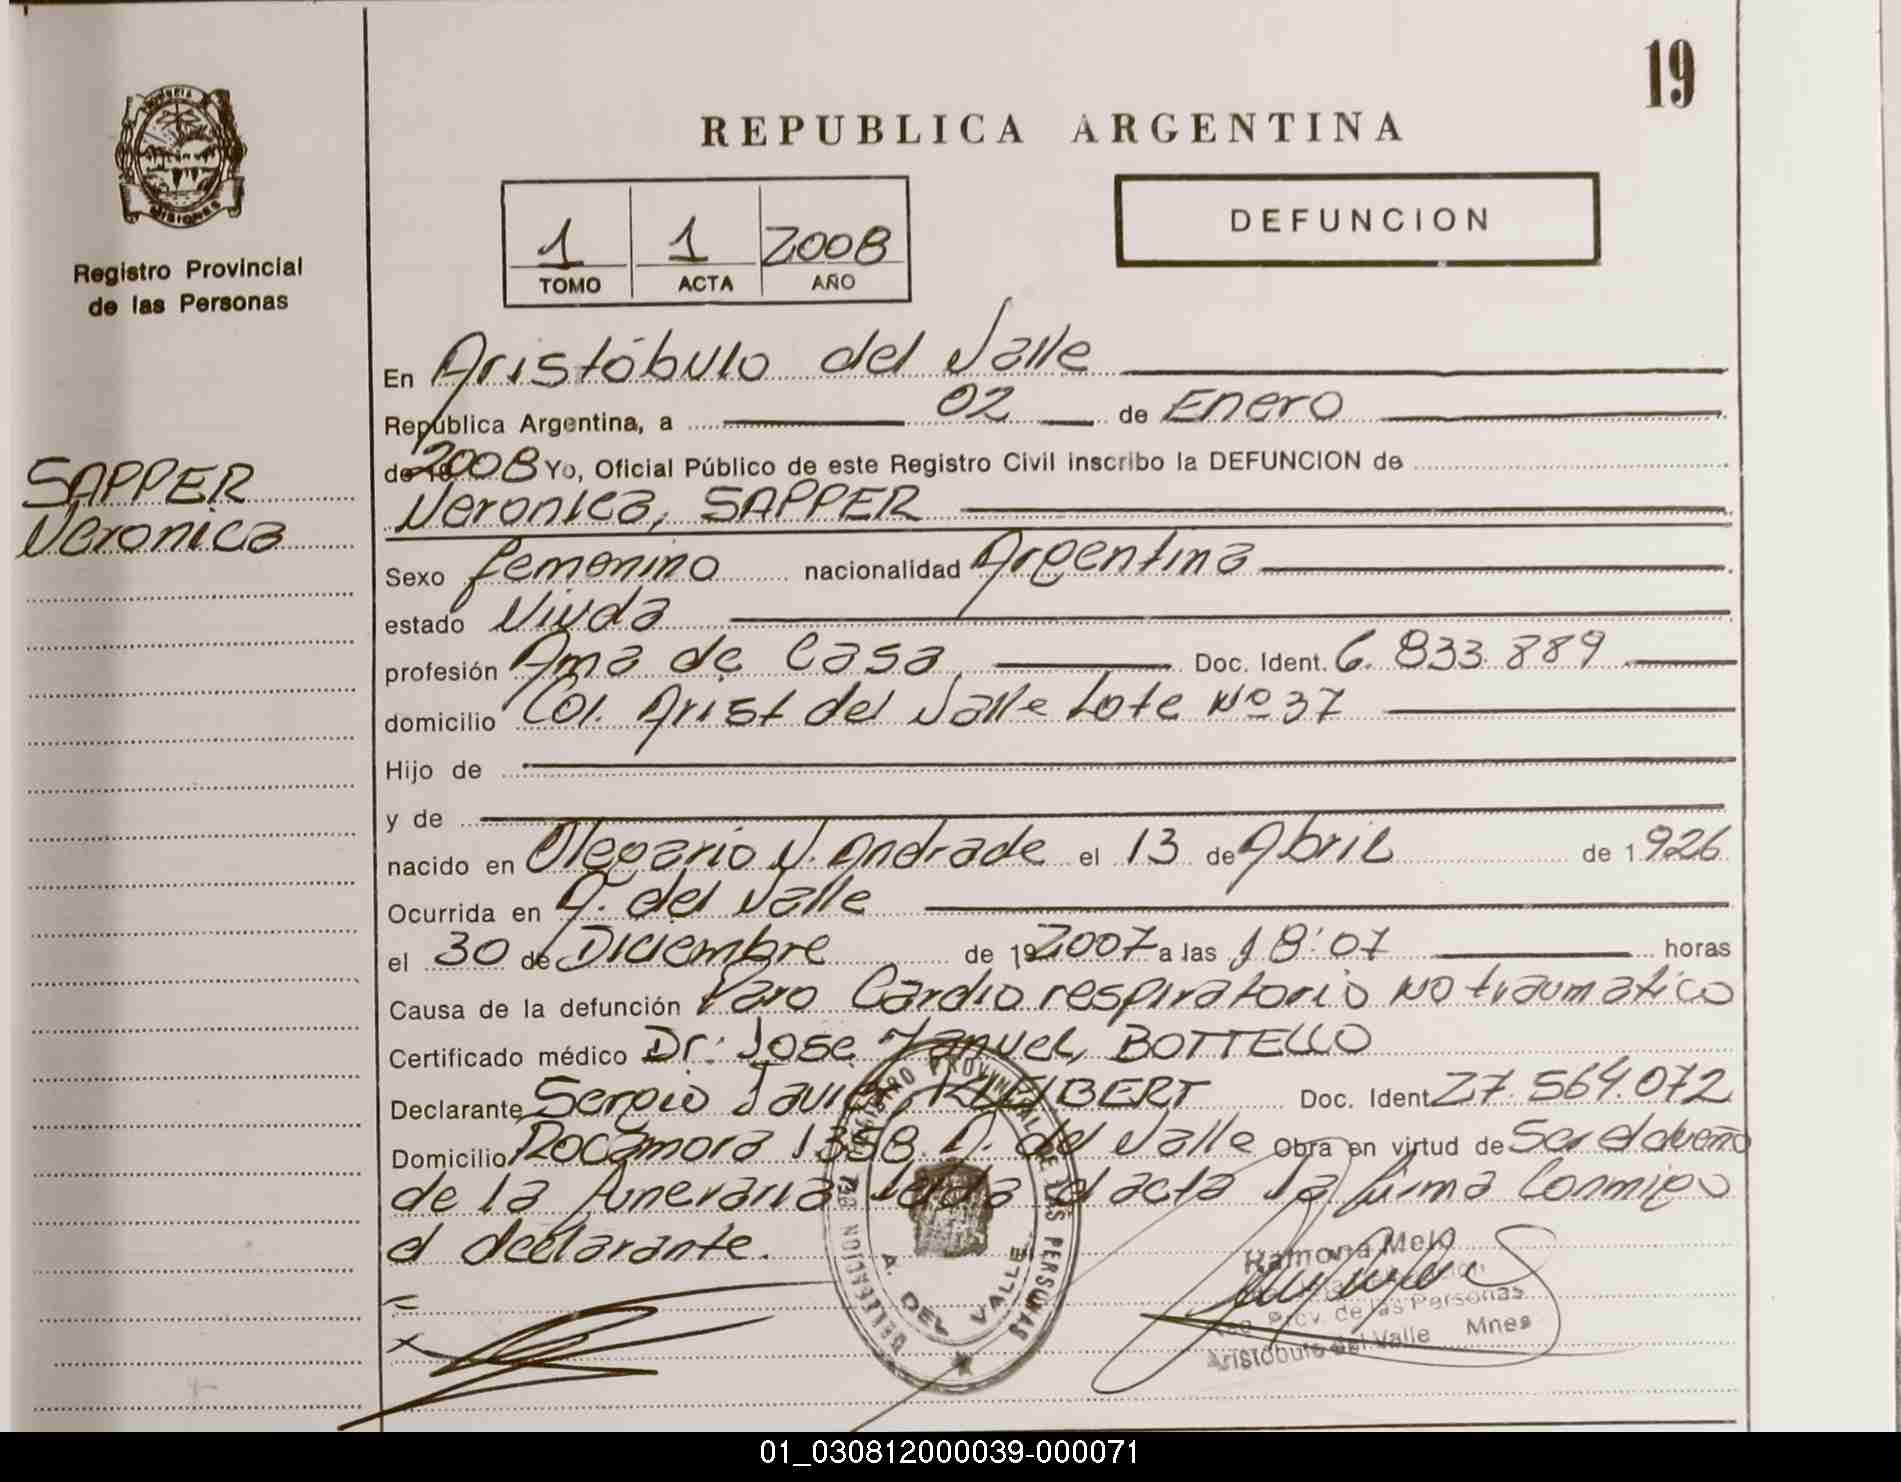 19
PROVINCIA
MISIONES
Registro Provincial
de las Personas
REPUBLICA ARGENTINA
1 1 2008
TOMO ACTA AÑO
DEFUNCION
En Aristóbulo del Valle
República Argentina, a 02 de Enero
de 2008 Yo, Oficial Público de este Registro Civil inscribo la DEFUNCION de
SAPPER
Veronica
Veronica, SAPPER
Sexo femenino nacionalidad Argentina
estado Viuda
profesión Ama de Casa Doc. Ident. 6.833.889
domicilio Col. Arist del Valle Lote Nº 37
Hijo de
y de
nacido en Olegario V. Andrade el 13 de Abril de 1926
Ocurrida en A. del Valle
el 30 de Diciembre de 19 2007 a las 18:07 horas
Causa de la defunción Paro Cardio respiratorio No traumatico
Certificado médico Dr: Jose Manuel, BOTTELLO
Declarante Sergio Javier KLEIBERT Doc. Ident 27.564.072
Domicilio Rocamora 1358 A. del Valle Obra en virtud de Ser el dueño
de la funeraria leida el acta la firma Conmigo
el declarante.
REGISTRO PROVINCIAL DE LAS PERSONAS
DELEGACION
A. DEL VALLE
Ramona Melo
Prov. de las Personas
Aristobulo del Valle Mnes
01_030812000039-000071